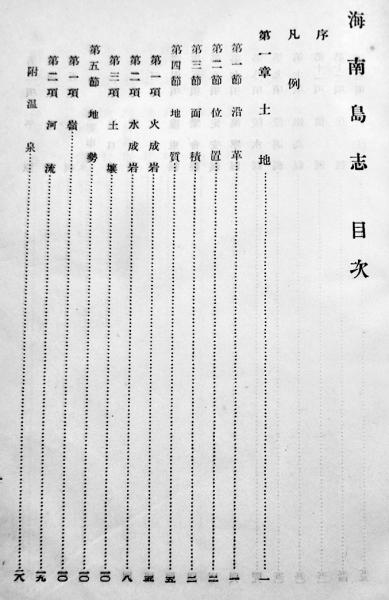 海南島志 目次
序
凡例
第一章 土地……一
第一節 沿革……一
第二節 位置……二
第三節 面積……三
第四節 地質……五
第一項 火成岩……五
第二項 水成岩……八
第三項 土壤……一〇
第五節 地勢……一〇
第一項 山嶺……一〇
第二項 河流……一九
附溫泉……二八